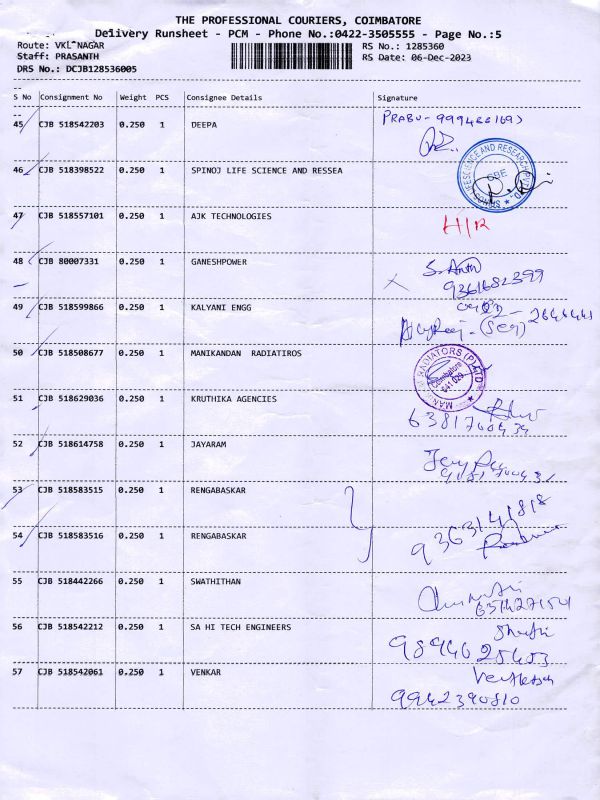 THE PROFESSIONAL COURIERS, COIMBATORE
Delivery Runsheet - PCM - Phone No.:0422-3505555 - Page No.:5
Route: VKL NAGAR
RS No.: 1285360
Staff: PRASANTH
RS Date: 06-Dec-2023
DRS No.: DCJB128536005
S No Consignment No Weight PCS Consignee Details Signature
45 CJB 518542203 0.250 1 DEEPA PRABU-
46 CJB 518398522 0.250 1 SPINOJ LIFE SCIENCE AND RESSEA
47 CJB 518557101 0.250 1 AJK TECHNOLOGIES H/R
48 CJB 80007331 0.250 1 GANESHPOWER
9361682399
49 CJB 518599866 0.250 1 KALYANI ENGG
50 CJB 518508677 0.250 1 MANIKANDAN RADIATIROS
51 CJB 518629036 0.250 1 KRUTHIKA AGENCIES
52 CJB 518614758 0.250 1 JAYARAM
53 CJB 518583515 0.250 1 RENGABASKAR 9363141818
54 CJB 518583516 0.250 1 RENGABASKAR
55 CJB 518442266 0.250 1 SWATHITHAN
56 CJB 518542212 0.250 1 SA HI TECH ENGINEERS
9894625403
57 CJB 518542061 0.250 1 VENKAR
9942390810